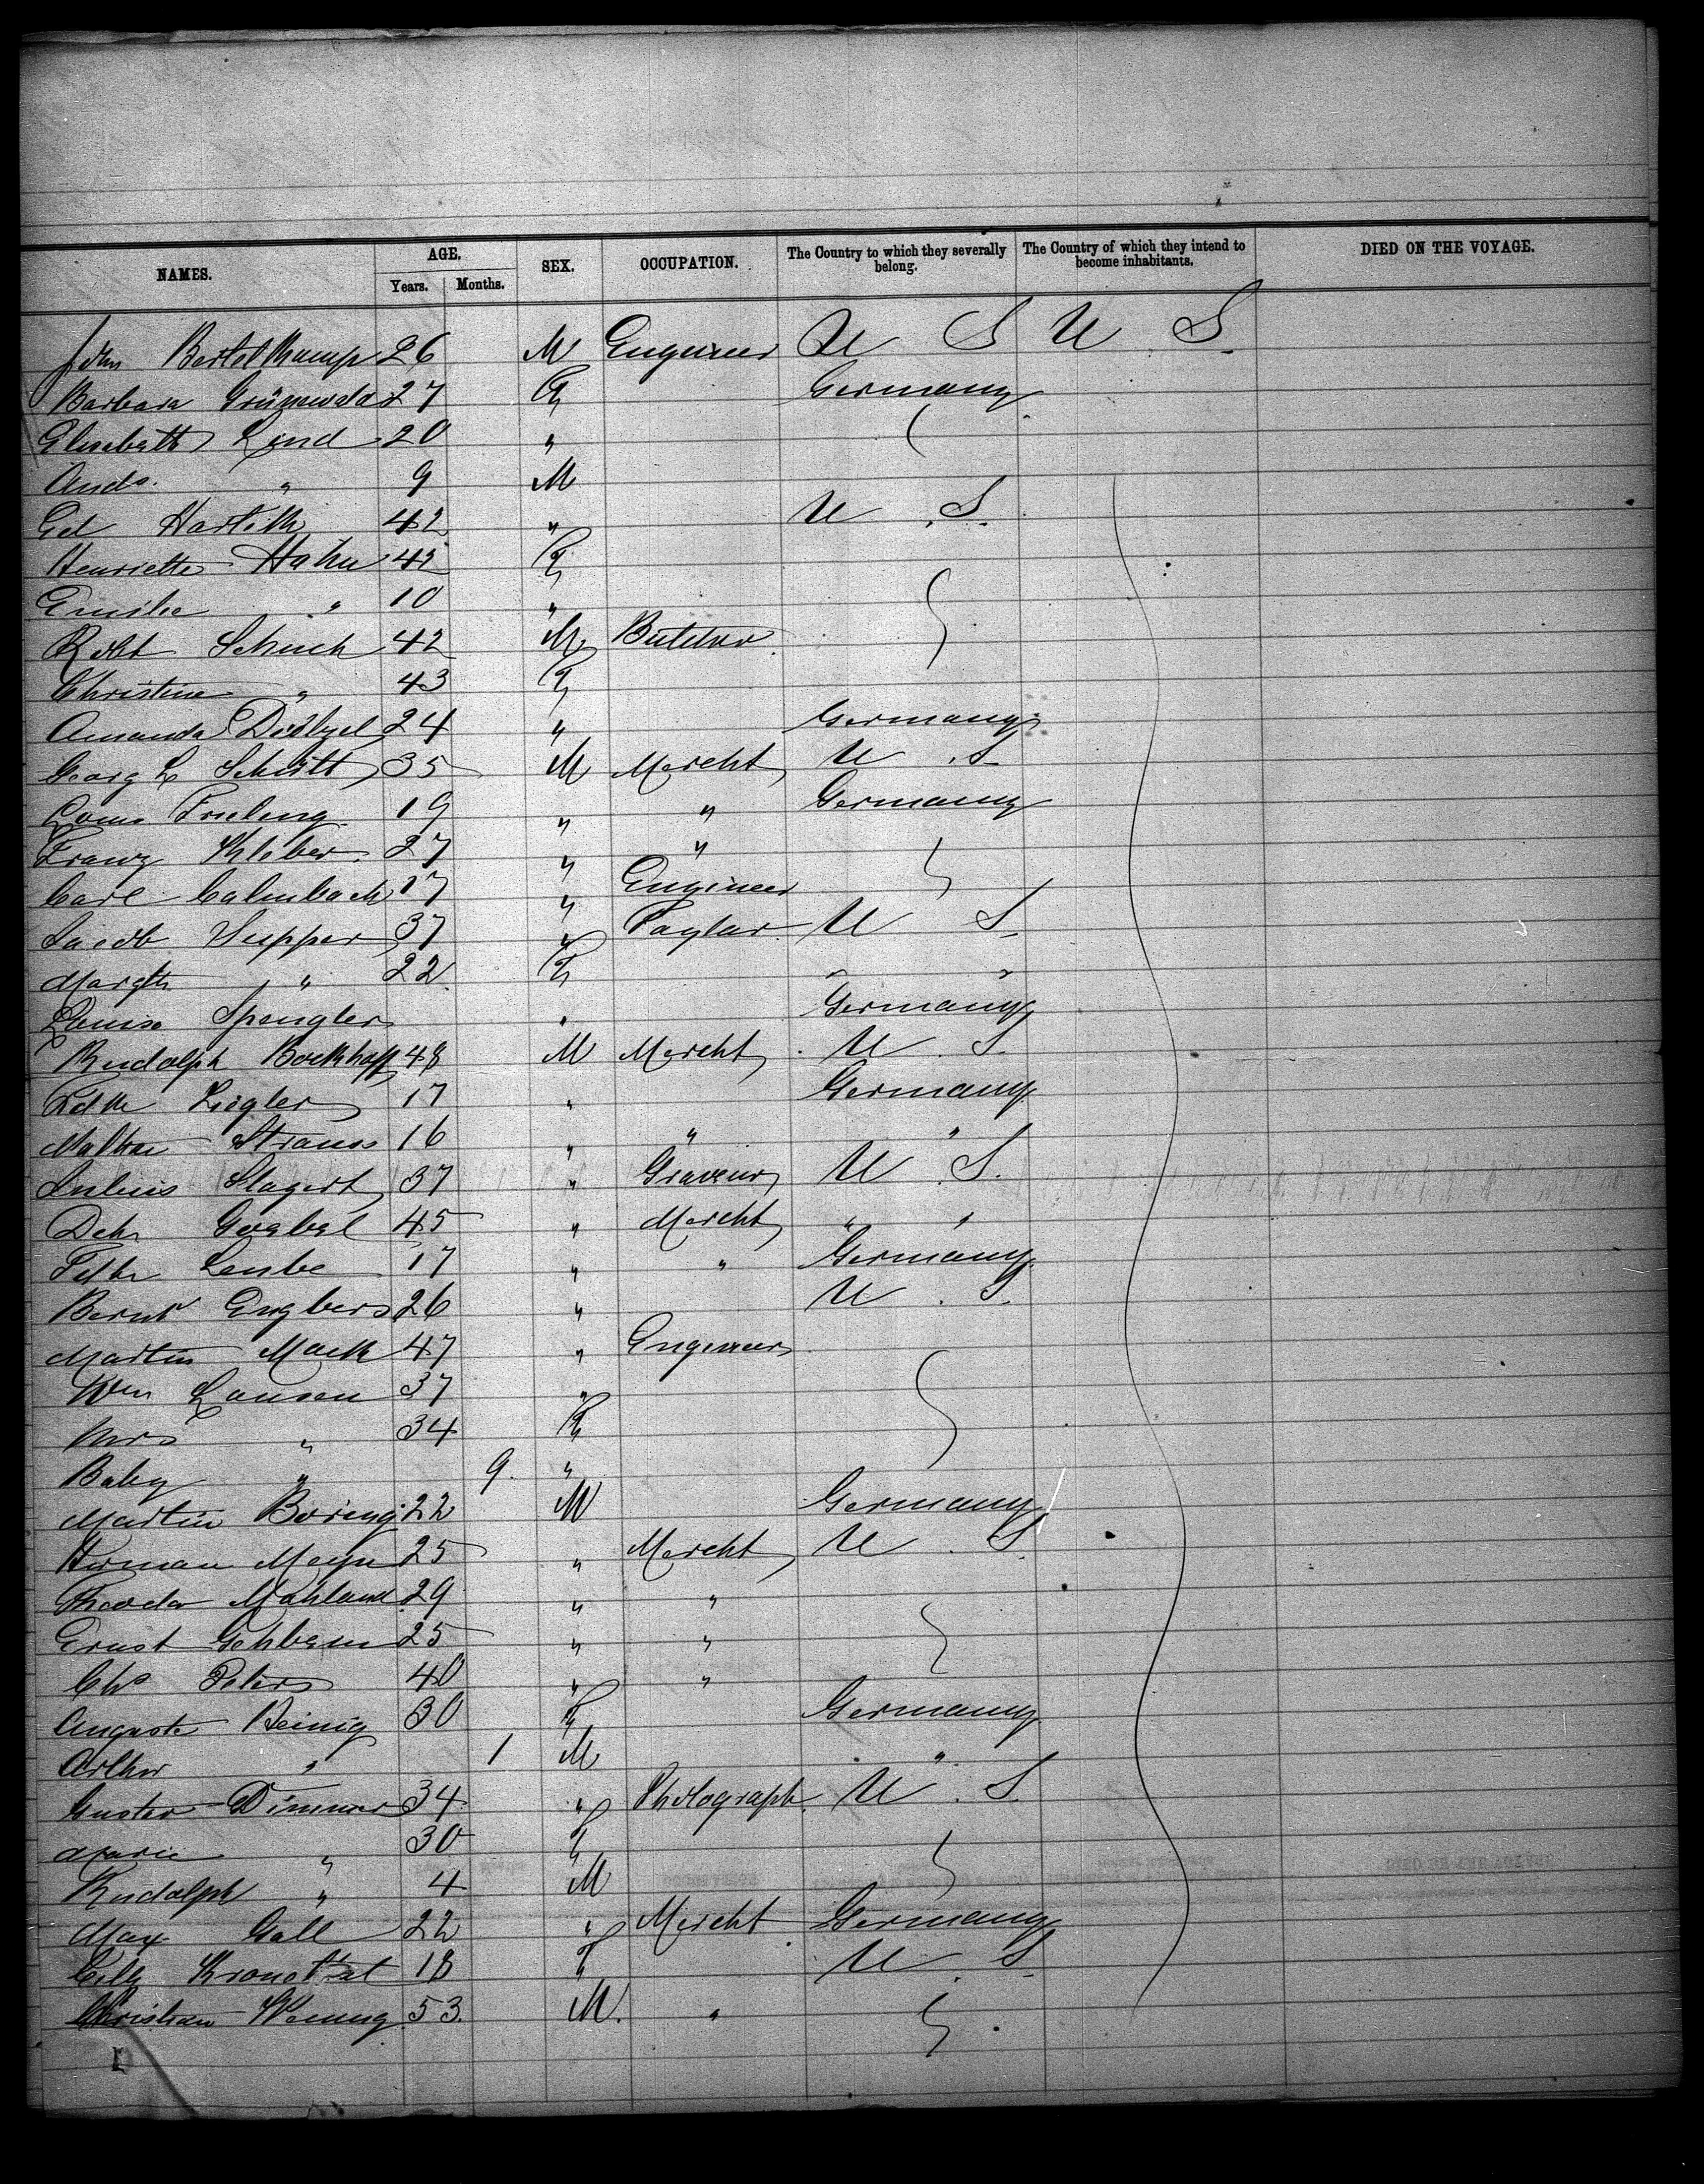 NAMES. AGE. Years. Months. SEX. OCCUPATION. The Country to which they severally belong. The Country of which they intend to become inhabitants. DIED ON THE VOYAGE.
John Bertelkamp 26 M Engineer U S U S
Barbara Grünewald 27 F Germany
Elisabeth Lind 20 "
Ands. " 9 M
Ed 42 " U.S.
Henriette Hahn 42 F
Emilie " 10 "
Robt Schuch 42 M Butcher
Christine " 43 F
Amanda 24 " Germany
Georg L Schütt 35 M Mercht U.S.
Louis Frieling 19 " " Germany
Franz Kleber 27 " "
Carl Calmbach 17 " Engineer
Jacob Supper 37 " Taylor U S
Margth " 22 F " "
Louise Spengler " Germany
Rudolph Bockhoff 48 M Mercht U.S.
Fdk Ziegler 17 " Germany
Nathan Strauss 16 " " "
Julius 37 " Graveur U.S.
Goebel 45 " Mercht " "
Leube 17 " " Germany
Bernd Engbers 26 " U.S.
Martin Mack 47 " Engineer
Wm Lausen 37 "
Mrs " 34 F
Baby " 9. "
Martin Boring 22 M Germany
Herman Meyn 25 " Mercht U.S.
Theodor Mahland 29 " "
Ernst 25 " "
Chs Peters 40 " "
Auguste Heinig 30 F Germany
Arthur " 1 M " "
Gustav Dimmer 34 " Photograph U.S.
Marie " 30 F
Rudolph " 4 M
Max Gall 22 " Mercht Germany
Cilly 18 F U.S.
Christian 53. M. "